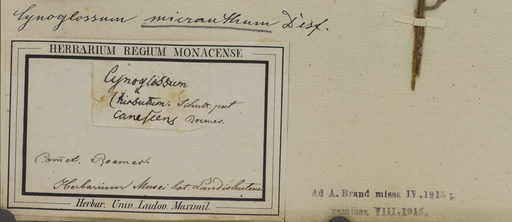 Cynoglossum micranthum Desf.
HERBARIUM REGIUM MONACENSE
Cynoglossum
(hirsutum. Schult. pat
canescens Roemer.
Roemer
Herbarium Musei bot. Landishutensis
Herbar. Univ. Ludov. Maximil.
Ad A. Brand missa IV.1915;
remissa VIII.1915.